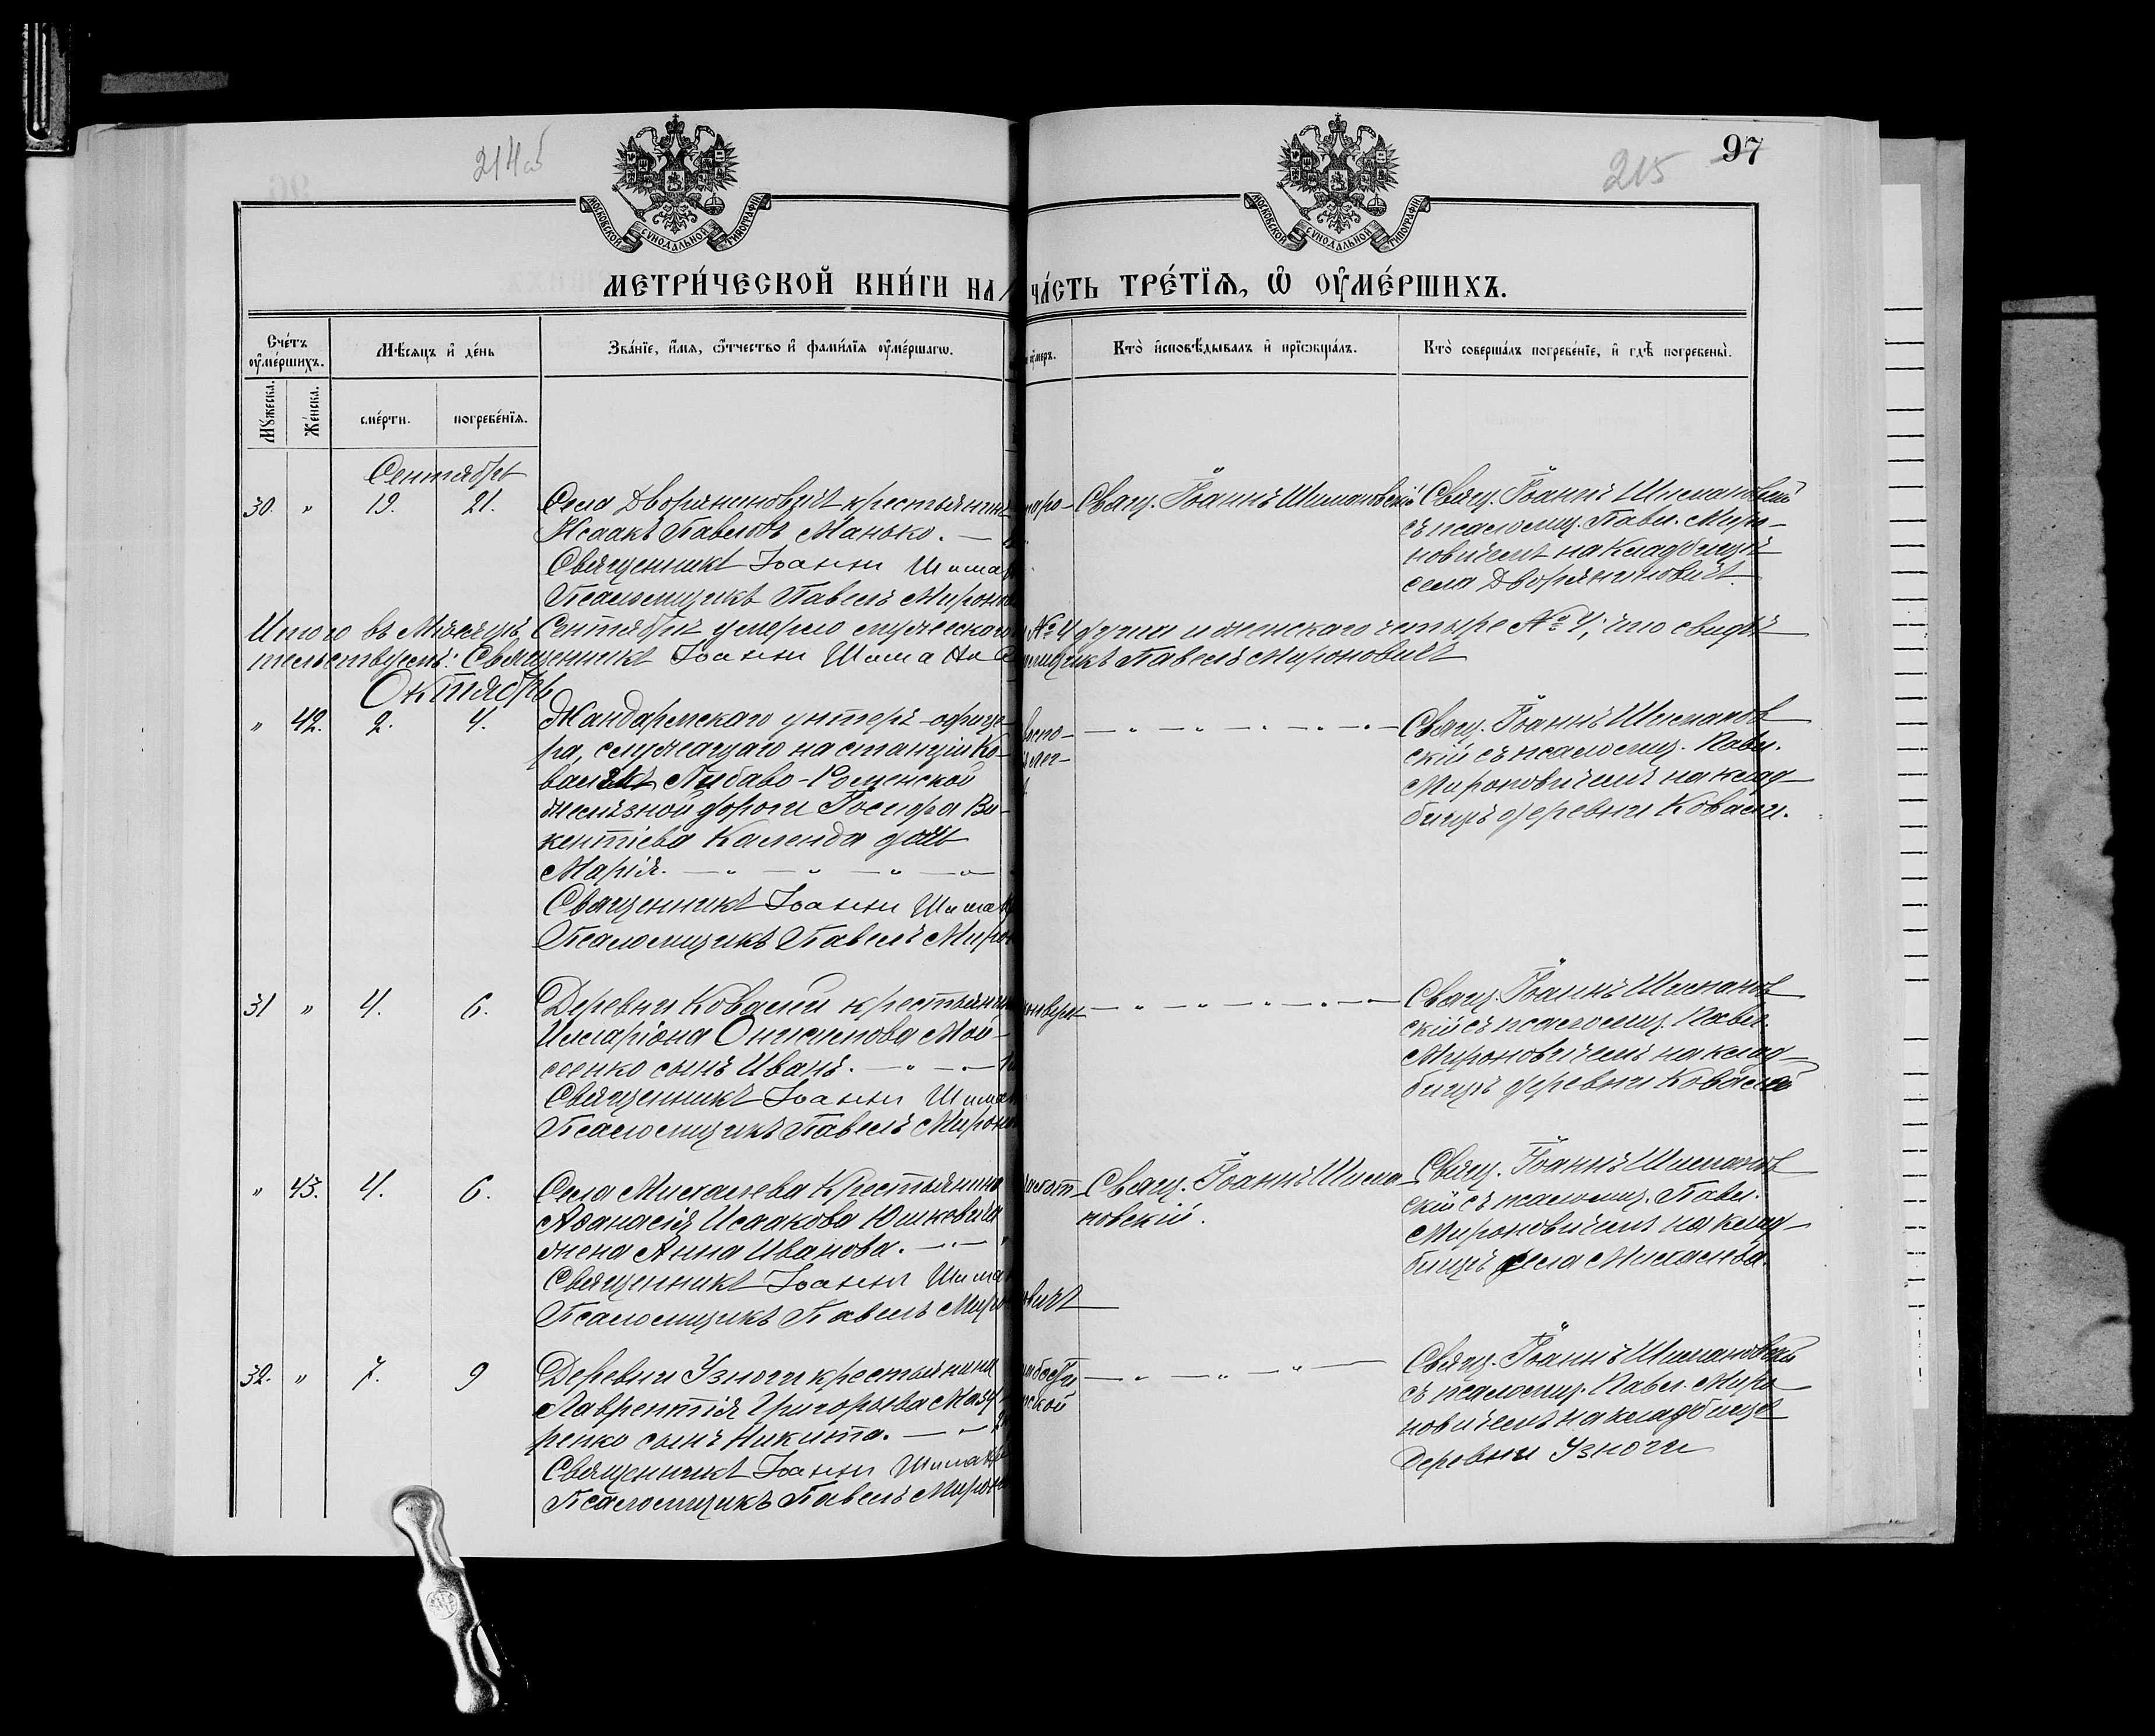 214об
215
97
МОСКОВСКОЙ СѴНОДАЛЬНОЙ ТИПОГРАФІИ
МОСКОВСКОЙ СѴНОДАЛЬНОЙ ТИПОГРАФІИ
МЕТРИ́ЧЕСКОЙ КНИ́ГИ НА
ЧА́СТЬ ТРЕ́ТЇѦ, Ѡ҆ ОУ҆МЕ́РШИХЪ.
Сче́тъ оу҆ме́ршихъ.
Мѣсяцъ и҆ де́нь
Зва́нїе, и҆́мя, ѻ҆́тчество и҆ фами́лїя оу҆ме́ршагѡ.
оу҆меръ.
Кто̀ и҆сповѣ́дывалъ и҆ прїѡбща́лъ.
Кто̀ соверша́лъ погребе́нїе, и҆ гдѣ̀ погребены̀.
Мꙋ́жеска.
Же́нска.
сме́рти.
погребе́нїя.
Сентябрь
30. " 19. 21. Села Дворяниновичъ крестьянинъ
Исаакъ Павловъ Манько. —
Священникъ Іоаннъ Шима
Псаломщикъ Павелъ Мироно
Свящ. Іоаннъ Шимановскій
Свящ. Іоаннъ Шимановскій
съ псаломщ. Павл. Миро-
новичемъ на кладбищѣ
села Дворяниновичъ
Итого въ Мѣсяцѣ Сентябрѣ умерло мужескаго № 4 душа и женскаго четыре № 4; что свидѣ
тельствуемъ: Священникъ Іоаннъ Шима Павелъ Мироновичъ
Октябрь
" 42. 2. 4. Жандармскаго унтеръ-офице-
ра, служащаго на станціи Ко-
Либаво-Роменской
желѣзной дороги Іосифа Ви-
кентіева Календа дочь
Марія. — " — " — " —
Священникъ Іоаннъ Шима
Псаломщикъ Павелъ Миро
— " — " — " — " —
Свящ. Іоаннъ Шиманов
скій съ псаломщ. Павл.
Мироновичемъ на клад-
бищѣ деревни Ковали.
31 " 4. 6. Деревни Ковалей крестьянина
Илларіона Онисимова Мой-
сеенко сынъ Иванъ. — " — " —
Священникъ Іоаннъ Шима
Псаломщикъ Павелъ Мироно
— " — " — " — " —
Свящ. Іоаннъ Шиманов
скій съ псаломщ. Павл.
Мироновичемъ на клад-
бищѣ деревни Ковалей
" 43. 4. 6. Села Михалева Крестьянина
Аѳанасія Исаакова Юшковича
жена Анна Иванова. — " —
Священникъ Іоаннъ Шима
Псаломщикъ Павелъ Миро
овичъ
Свящ. Іоаннъ Шима-
новскій.
Свящ. Іоаннъ Шиманов
скій съ псаломщ. Павл.
Мироновичемъ на клад-
бищѣ села Михалева.
32. " 7. 9 Деревни Узноги крестьянина
Лаврентія Григорьева Маза
ренко сынъ Никита. — " —
Священникъ Іоаннъ Шима
Псаломщикъ Павелъ Мироно
— " — " — " —
Свящ. Іоаннъ Шимановскій
съ псаломщ. Павл. Миро
новичемъ на кладбищѣ
деревни Узноги